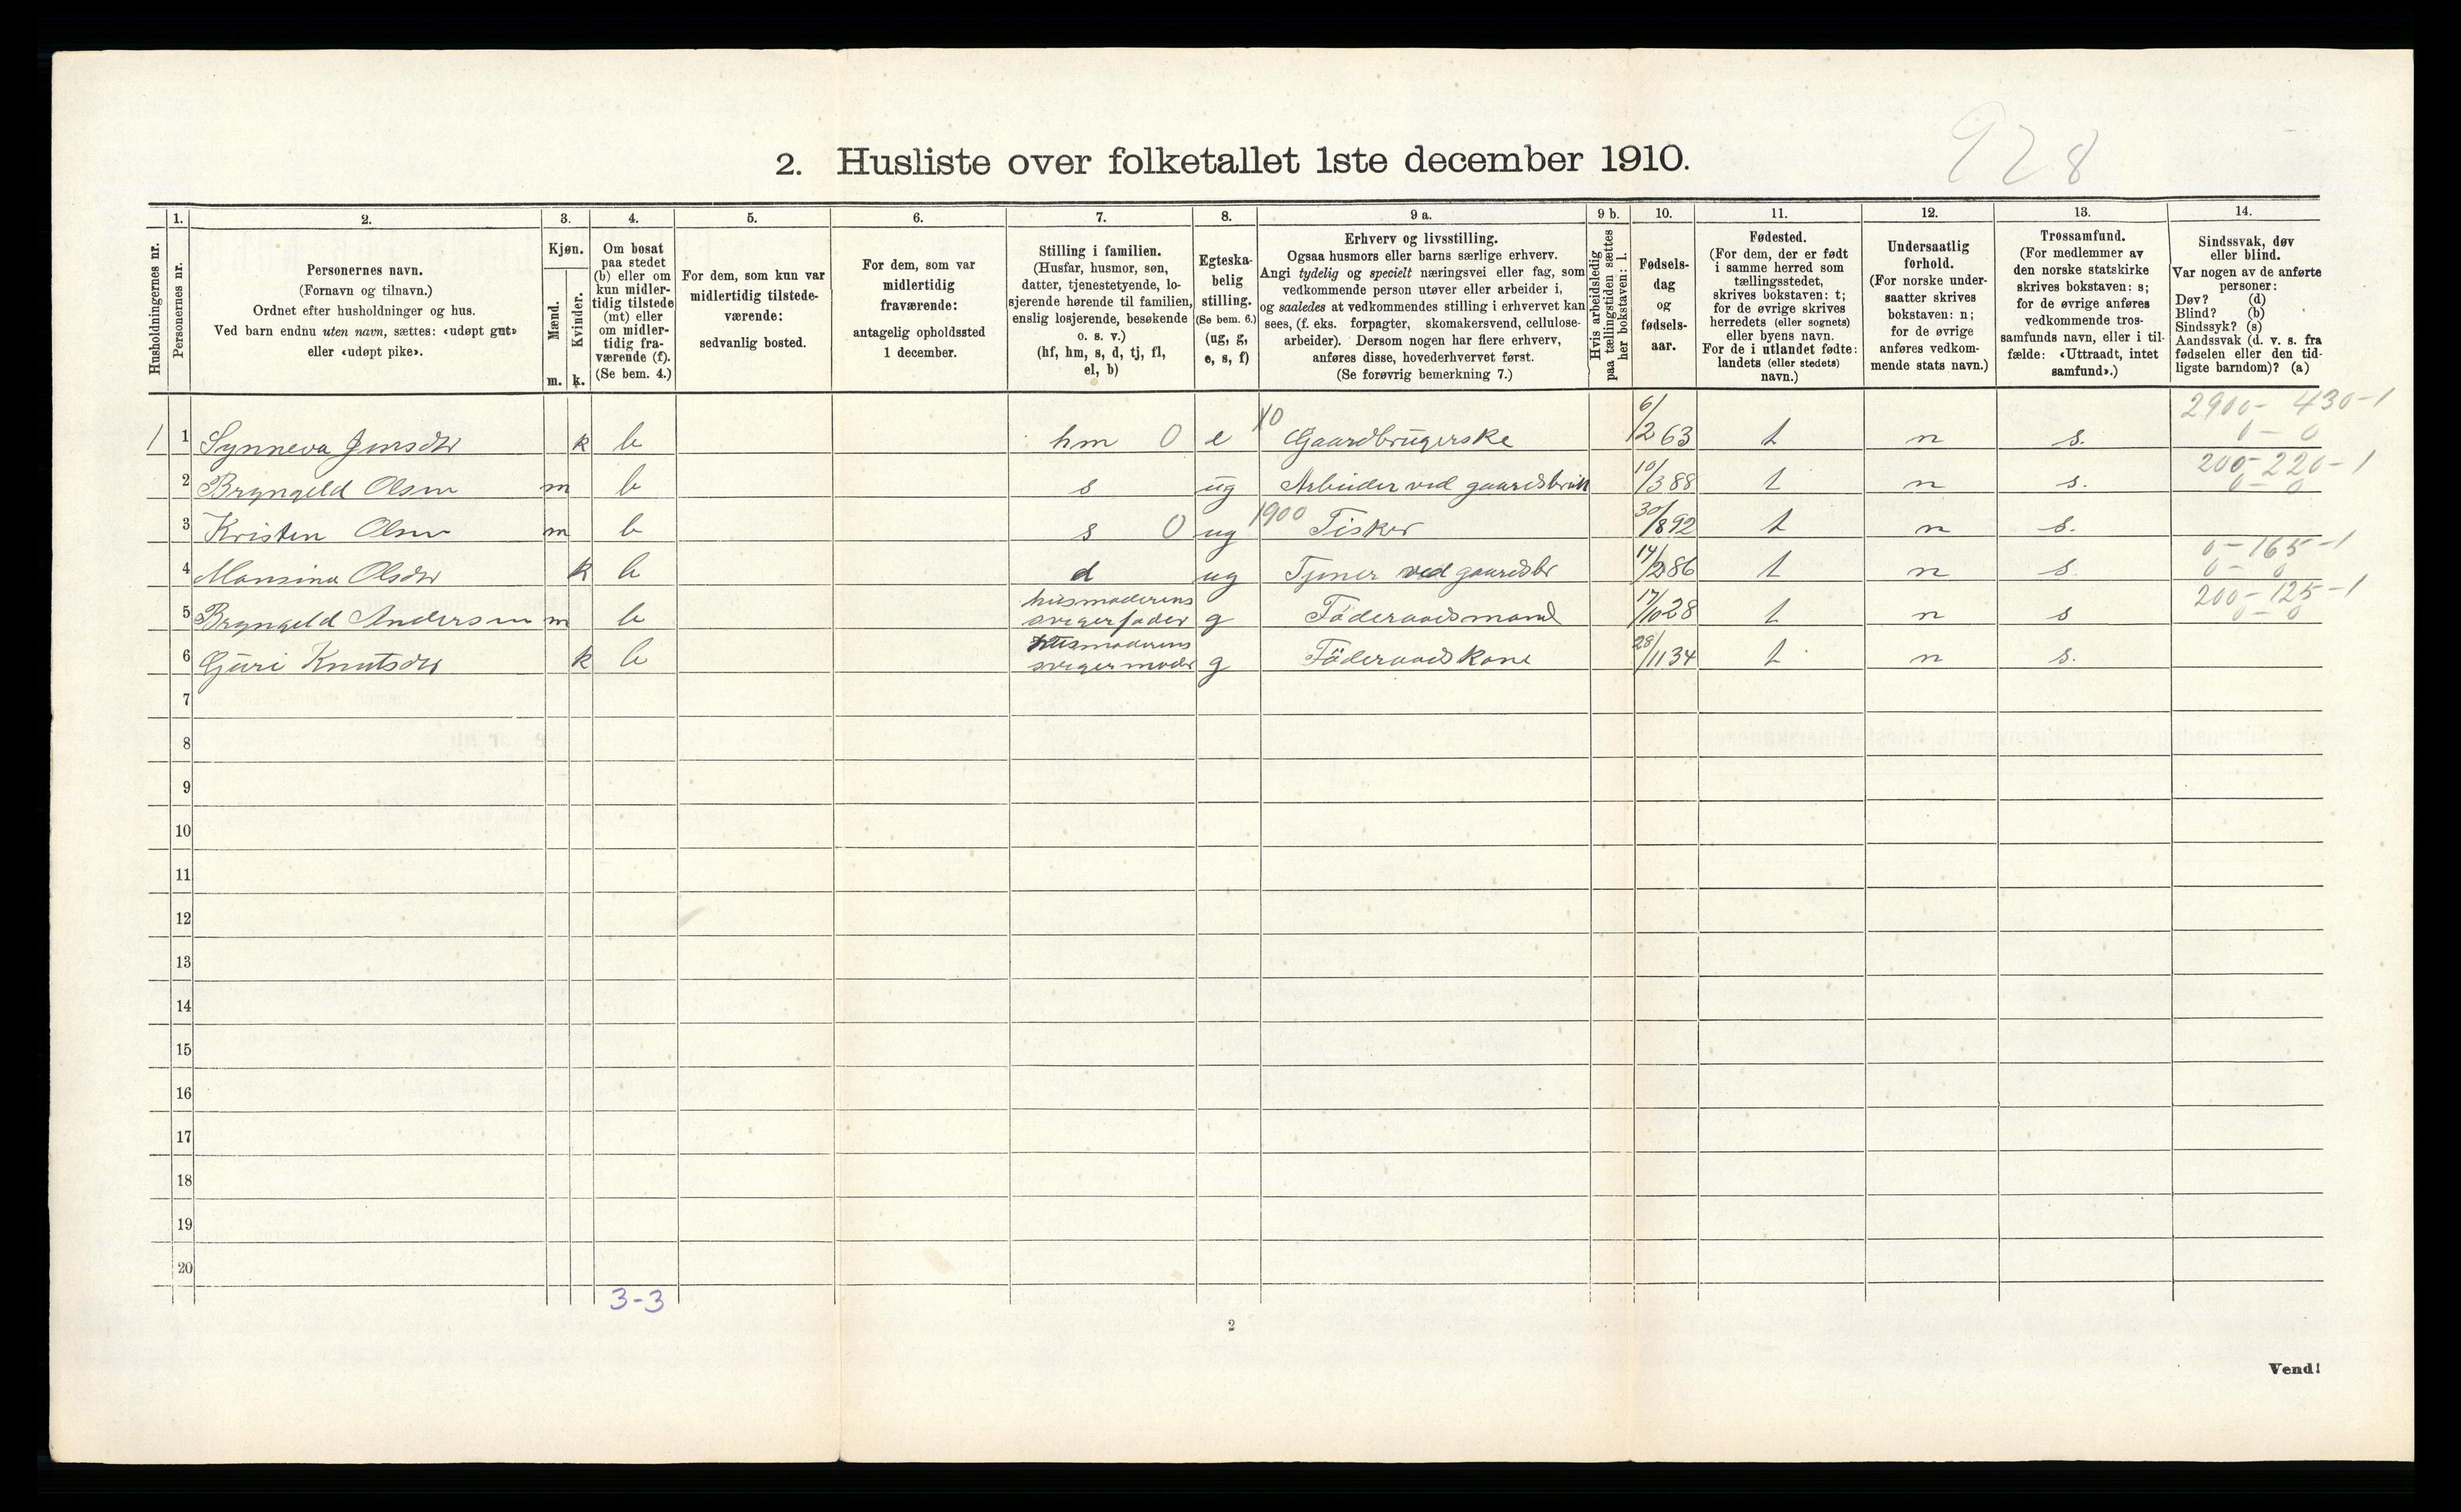 928
2. Husliste over folketallet 1ste december 1910.
Husholdningernes nr.
1.
Personernes nr.
2.
Personernes navn.
(Fornavn og tilnavn.)
Ordnet efter husholdninger og hus.
Ved barn endnu uten navn, sættes: «udøpt gut»
eller «udøpt pike».
3.
Kjøn.
Mænd.
Kvinder.
m. k.
4.
Om bosat
paa stedet
(b) eller om
kun midler-
tidig tilstede
(mt) eller
om midler-
tidig fra-
værende (f).
(Se bem. 4.)
5.
For dem, som kun var
midlertidig tilstede-
værende:
sedvanlig bosted.
6.
For dem, som var
midlertidig
fraværende:
antagelig opholdssted
1 december.
7.
Stilling i familien.
(Husfar, husmor, søn,
datter, tjenestetyende, lo-
sjerende hørende til familien,
enslig losjerende, besøkende
o. s. v.)
(hf, hm, s, d, tj, fl,
el, b)
8.
Egteska-
belig
stilling.
(Se bem. 6.)
(ug, g,
e, s, f)
9 a.
Erhverv og livsstilling.
Ogsaa husmors eller barns særlige erhverv.
Angi tydelig og specielt næringsvei eller fag, som
vedkommende person utøver eller arbeider i,
og saaledes at vedkommendes stilling i erhvervet kan
sees, (f. eks. forpagter, skomakersvend, cellulose-
arbeider). Dersom nogen har flere erhverv,
anføres disse, hovederhvervet først.
(Se forøvrig bemerkning 7.)
9 b.
Hvis arbeidsledig
paa tællingstiden sættes
her bokstaven: l.
10.
Fødsels-
dag
og
fødsels-
aar.
11.
Fødested.
(For dem, der er født
i samme herred som
tællingsstedet,
skrives bokstaven: t;
for de øvrige skrives
herredets (eller sognets)
eller byens navn.
For de i utlandet fødte:
landets (eller stedets)
navn.)
12.
Undersaatlig
forhold.
(For norske under-
saatter skrives
bokstaven: n;
for de øvrige
anføres vedkom-
mende stats navn.)
13.
Trossamfund.
(For medlemmer av
den norske statskirke
skrives bokstaven: s;
for de øvrige anføres
vedkommende tros-
samfunds navn, eller i til-
fælde: «Uttraadt, intet
samfund».)
14.
Sindssvak, døv
eller blind.
Var nogen av de anførte
personer:
Døv? (d)
Blind? (b)
Sindssyk? (s)
Aandssvak (d. v. s. fra
fødselen eller den tid-
ligste barndom)? (a)
2900 - 430 - 1
1 1 Synneva Jensdtr k b hm 0 e 10 Gaardbrugerske 6/2 63 t n s. 0 - 0
200 - 220 - 1
2 Bryngeld Olsen m b s ug Arbeider ved gaardsbruk 10/3 88 t n s. 0 - 0
3 Kristen Olsen m b s 0 ug 1900 Fisker 30/8 92 t n s.
0 - 165 - 1
4 Mansina Olsdtr k b d ug Tjener ved gaardsbr 14/2 86 t n s. 0 - 0
husmoderens 200 - 125 - 1
5 Bryngeld Andersen m b svigerfader g Föderaadsmand 17/10 28 t n s 0 - 0
husmoderens
6 Guri Knutsdtr k b svigermoder g Föderaadskone 28/11 34 t n s.
7
8
9
10
11
12
13
14
15
16
17
18
19
20
3-3
2
Vend!